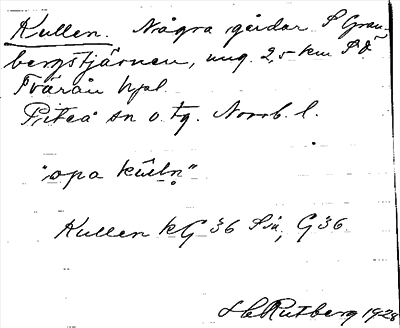 Kullen. Några gårdar S Gran-
bergstjärnen, ung. 2,5 km SÖ
Tvärån hpl.
Piteå sn o. tg. Norrb. l.
"opa kúlṇ"
Kullen kG 36 Sju, G 36
H C Rutberg 1928